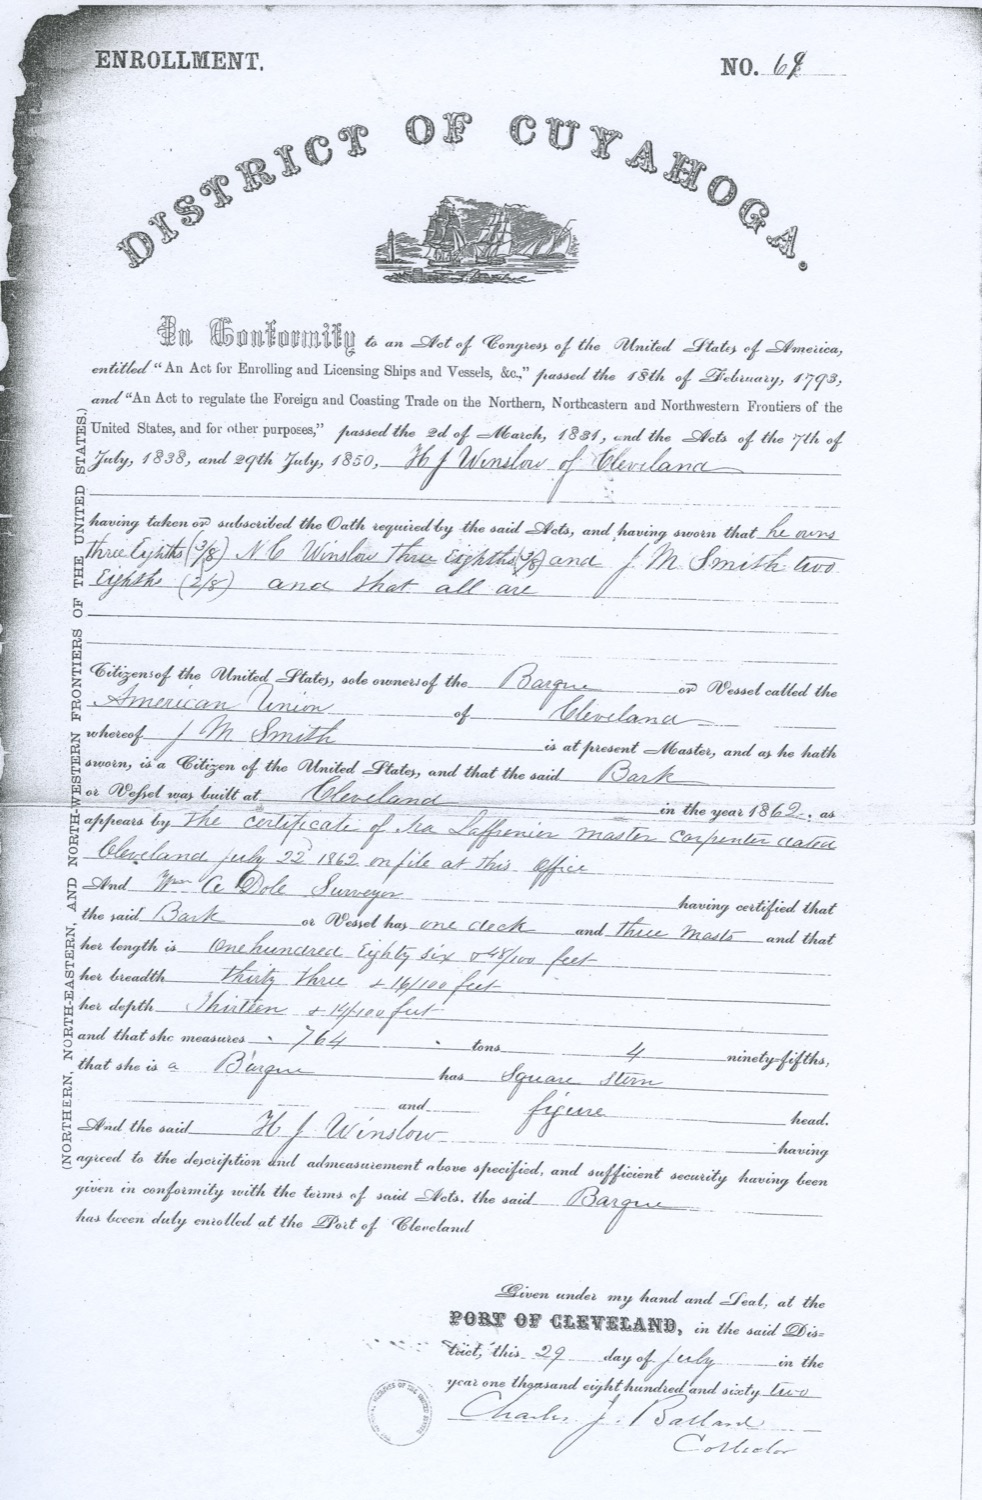 ENROLLMENT.
NO. 69
DISTRICT OF CUYAHOGA.
In Conformity to an Act of Congress of the United States of America,
entitled "An Act for Enrolling and Licensing Ships and Vessels, &c.," passed the 18th of February, 1793,
and "An Act to regulate the Foreign and Coasting Trade on the Northern, Northeastern and Northwestern Frontiers of the
United States, and for other purposes," passed the 2d of March, 1831, and the Acts of the 7th of
July, 1838, and 29th July, 1850, H J Winslow of Cleveland
having taken or subscribed the Oath required by the said Acts, and having sworn that he owns
three Eighths (3/8) N C Winslow Three Eighths (3/8) and J M Smith two
Eighths (2/8) and that all are
Citizens of the United States, sole owners of the Barque or Vessel called the
American Union of Cleveland
whereof J M Smith is at present Master, and as he hath
sworn, is a Citizen of the United States, and that the said Bark
or Vessel was built at Cleveland in the year 1862, as
appears by the certificate of Ira Laffrenier master carpenter dated
Cleveland July 22 1862 on file at this office
And Wm A Dole Surveyor having certified that
the said Bark or Vessel has one deck and three masts and that
her length is One hundred Eighty six & 48/100 feet
her breadth thirty three & 16/100 feet
her depth Thirteen & 14/100 feet
and that she measures 764 tons 4 ninety-fifths,
that she is a Barque has Square stern
and figure head.
And the said H J Winslow having
agreed to the description and admeasurement above specified, and sufficient security having been
given in conformity with the terms of said Acts, the said Barque
has been duly enrolled at the Port of Cleveland
Given under my hand and Seal, at the
PORT OF CLEVELAND, in the said Dis-
trict, this 29 day of July in the
year one thousand eight hundred and sixty two
Charles J. Ballard
Collector
(NORTHERN, NORTH-EASTERN, AND NORTH-WESTERN FRONTIERS OF THE UNITED STATES.)